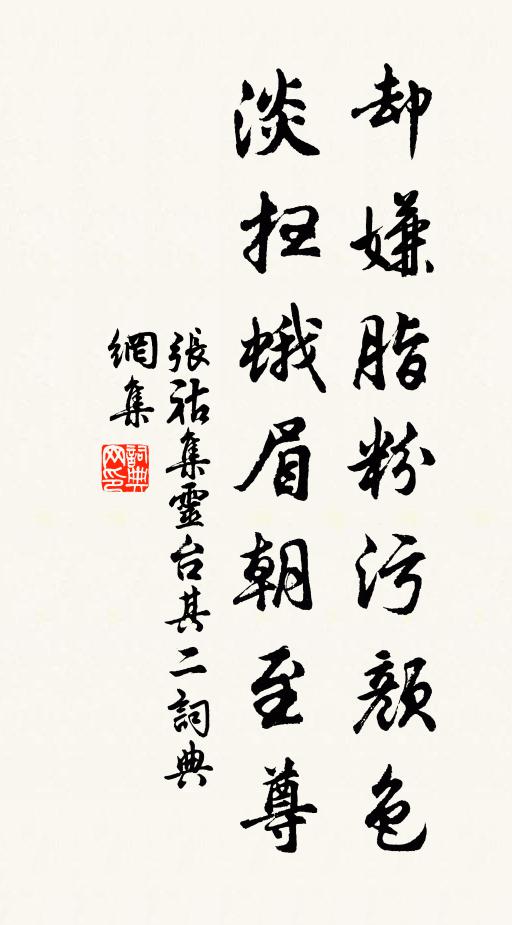 却嫌脂粉污颜色
淡扫蛾眉朝至尊
張祜集靈台其二詞典
網集
詞典
网印